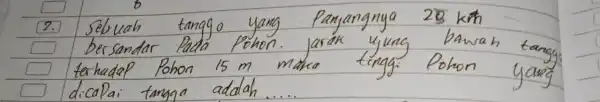 7. Sebuah tanggo yang Panjangnya 20 km
bersandar Pada Pohon. Jarak ujung bawah tangga
terhadap Pohon 15 m maka tinggi Pohon yang
dicaPai tangga adalah .....